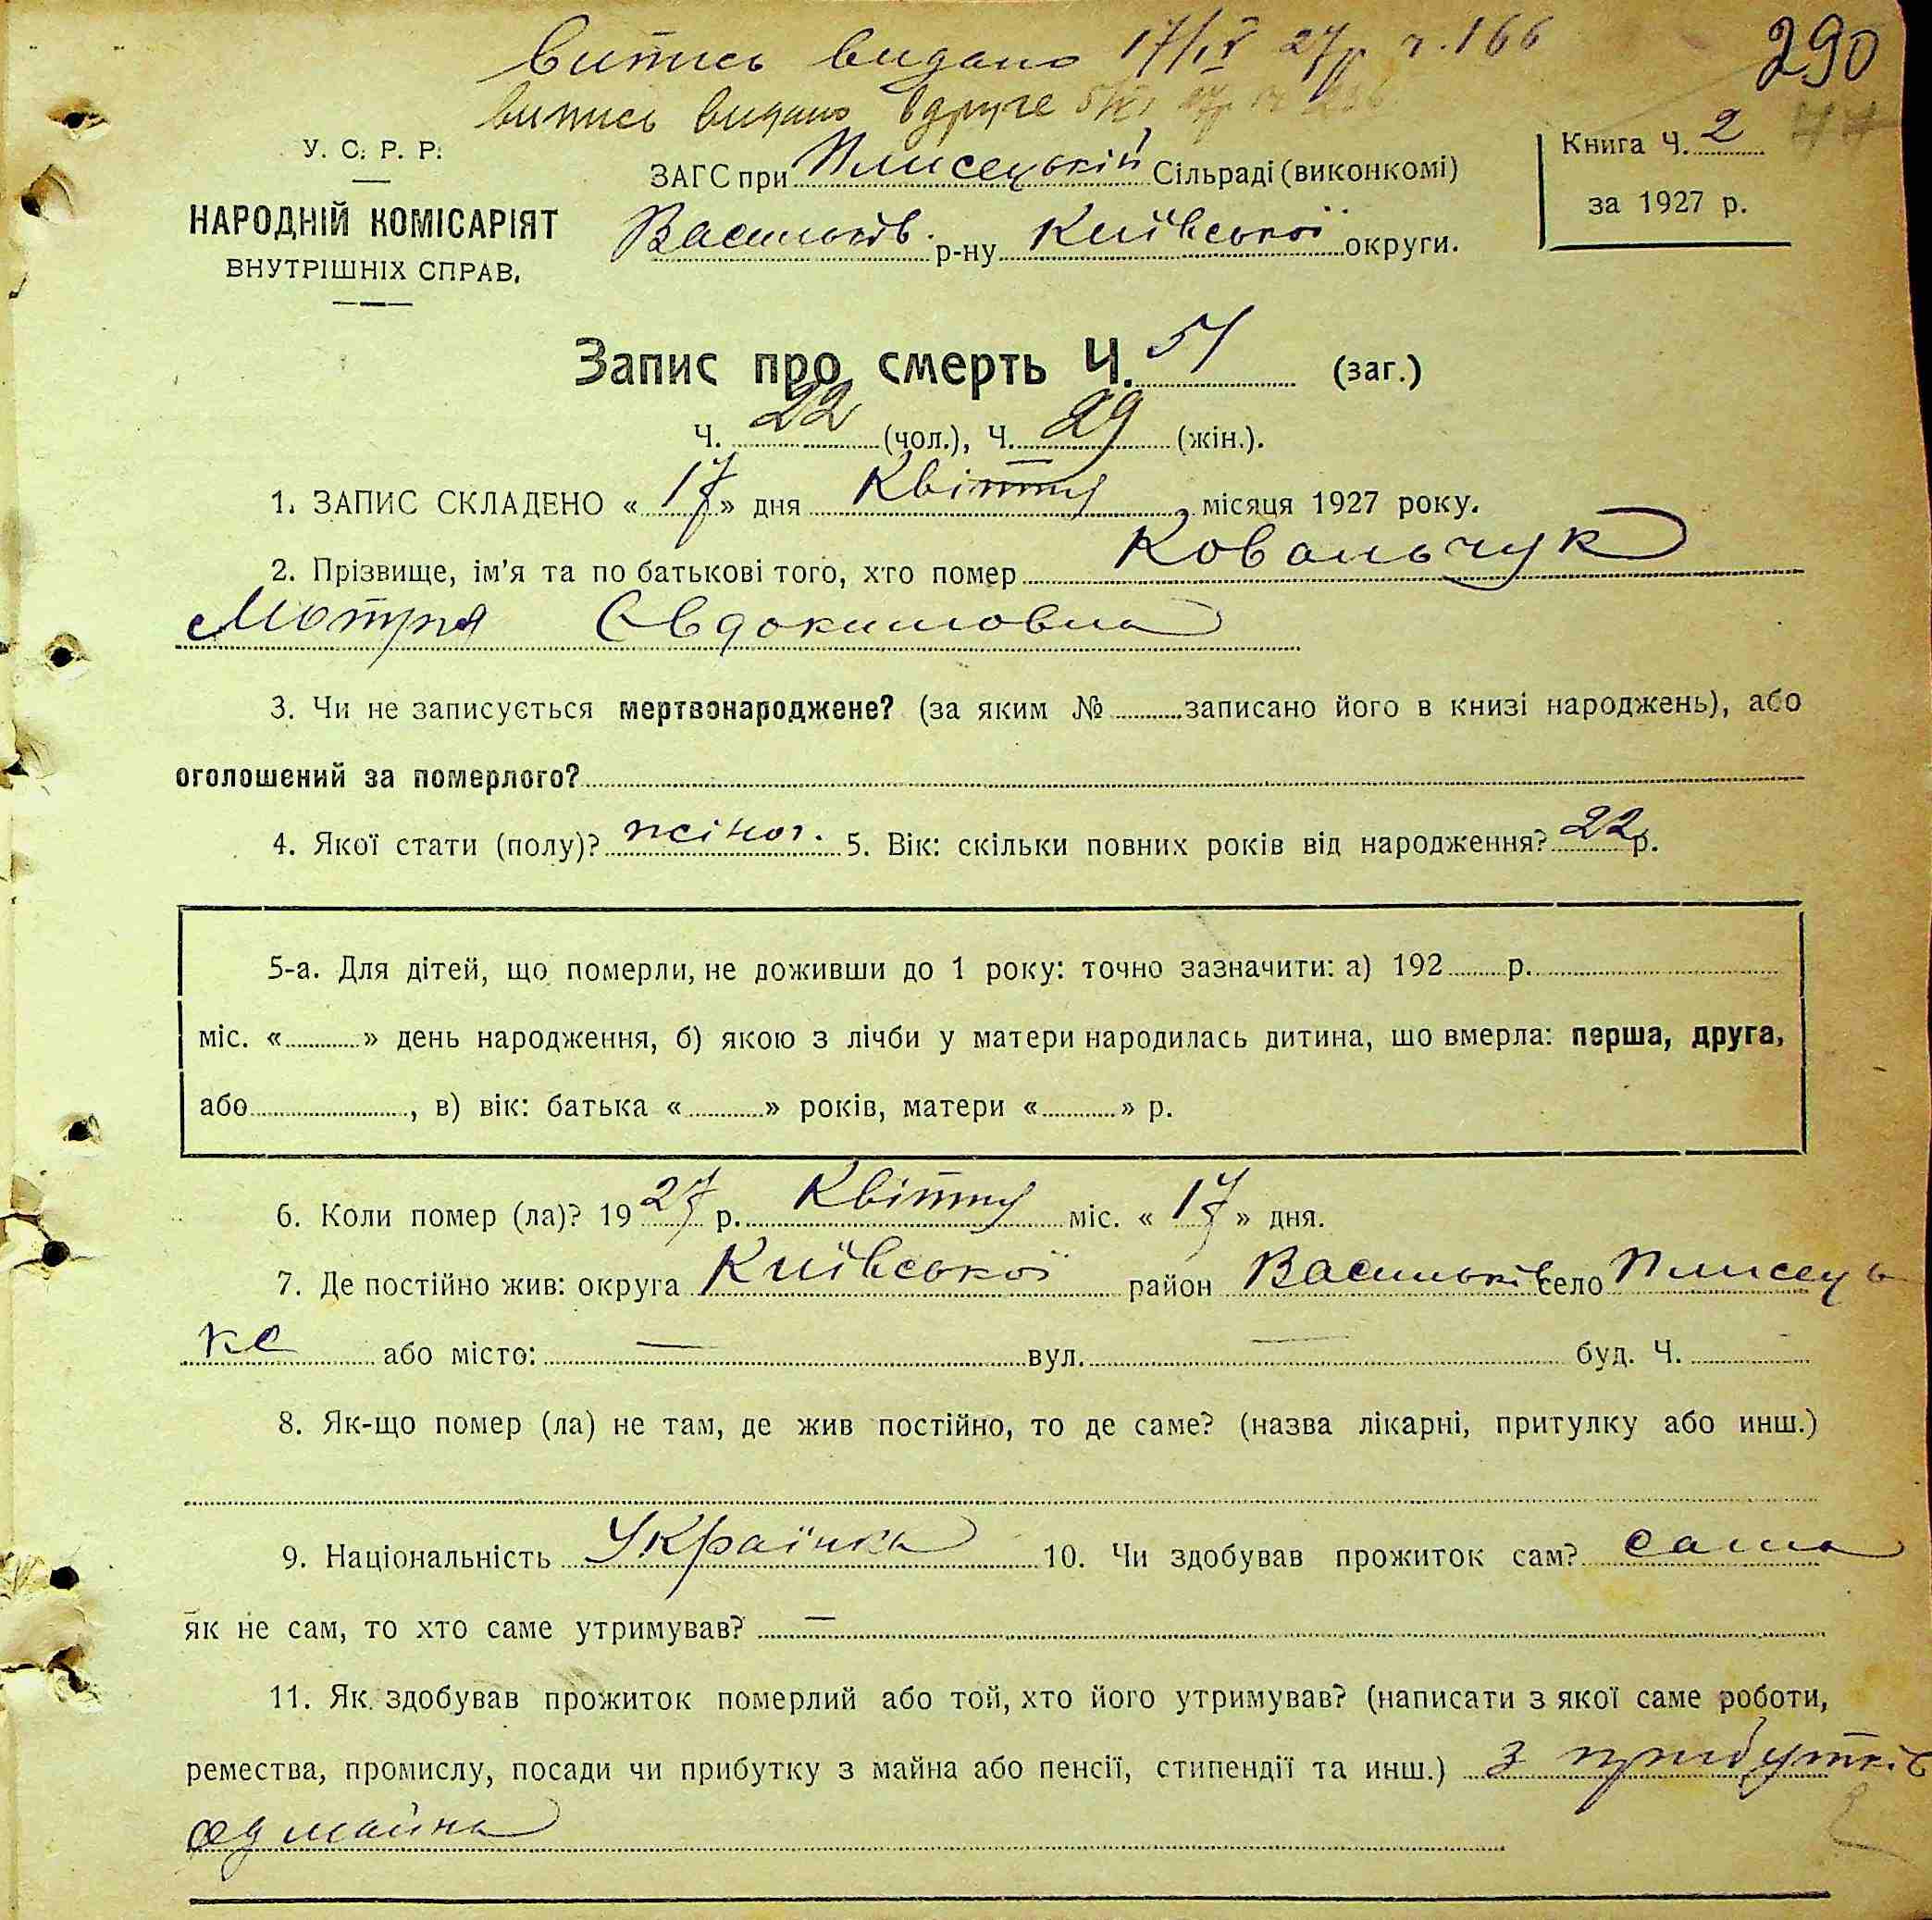 витись видано 17/IV 27р ч. 166
290
витись видано вдруге
У. С. Р. Р.
ЗАГС при Плисецькій Сільраді (виконкомі)
Книга Ч. 2
НАРОДНІЙ КОМІСАРІЯТ
Васильків. р-ну Київської округи.
за 1927 р.
ВНУТРІШНІХ СПРАВ.
Запис про смерть Ч. 51 (заг.)
Ч. 22 (чол.), Ч. 29 (жін.).
1. ЗАПИС СКЛАДЕНО « 17 » дня Квітня місяця 1927 року.
2. Прізвище, ім'я та по батькові того, хто помер Ковальчук
Мотря Овдокимовна
3. Чи не записується мертвонароджене? (за яким № записано його в книзі народжень), або
оголошений за померлого?
4. Якої стати (полу)? жіноч. 5. Вік: скільки повних років від народження? 22 р.
5-а. Для дітей, що померли, не доживши до 1 року: точно зазначити: а) 192 р.
міс. « » день народження, б) якою з лічби у матери народилась дитина, що вмерла: перша, друга,
або , в) вік: батька « » років, матери « » р.
6. Коли помер (ла)? 1927 р. Квітня міс. « 17 » дня.
7. Де постійно жив: округа Київської район Васильків село Плисець
ке або місто: — вул. — буд. Ч.
8. Як-що помер (ла) не там, де жив постійно, то де саме? (назва лікарні, притулку або инш.)
9. Національність Українка 10. Чи здобував прожиток сам? сама
як не сам, то хто саме утримував? —
11. Як здобував прожиток померлий або той, хто його утримував? (написати з якої саме роботи,
ремества, промислу, посади чи прибутку з майна або пенсії, стипендії та инш.) З прибутків
од майна